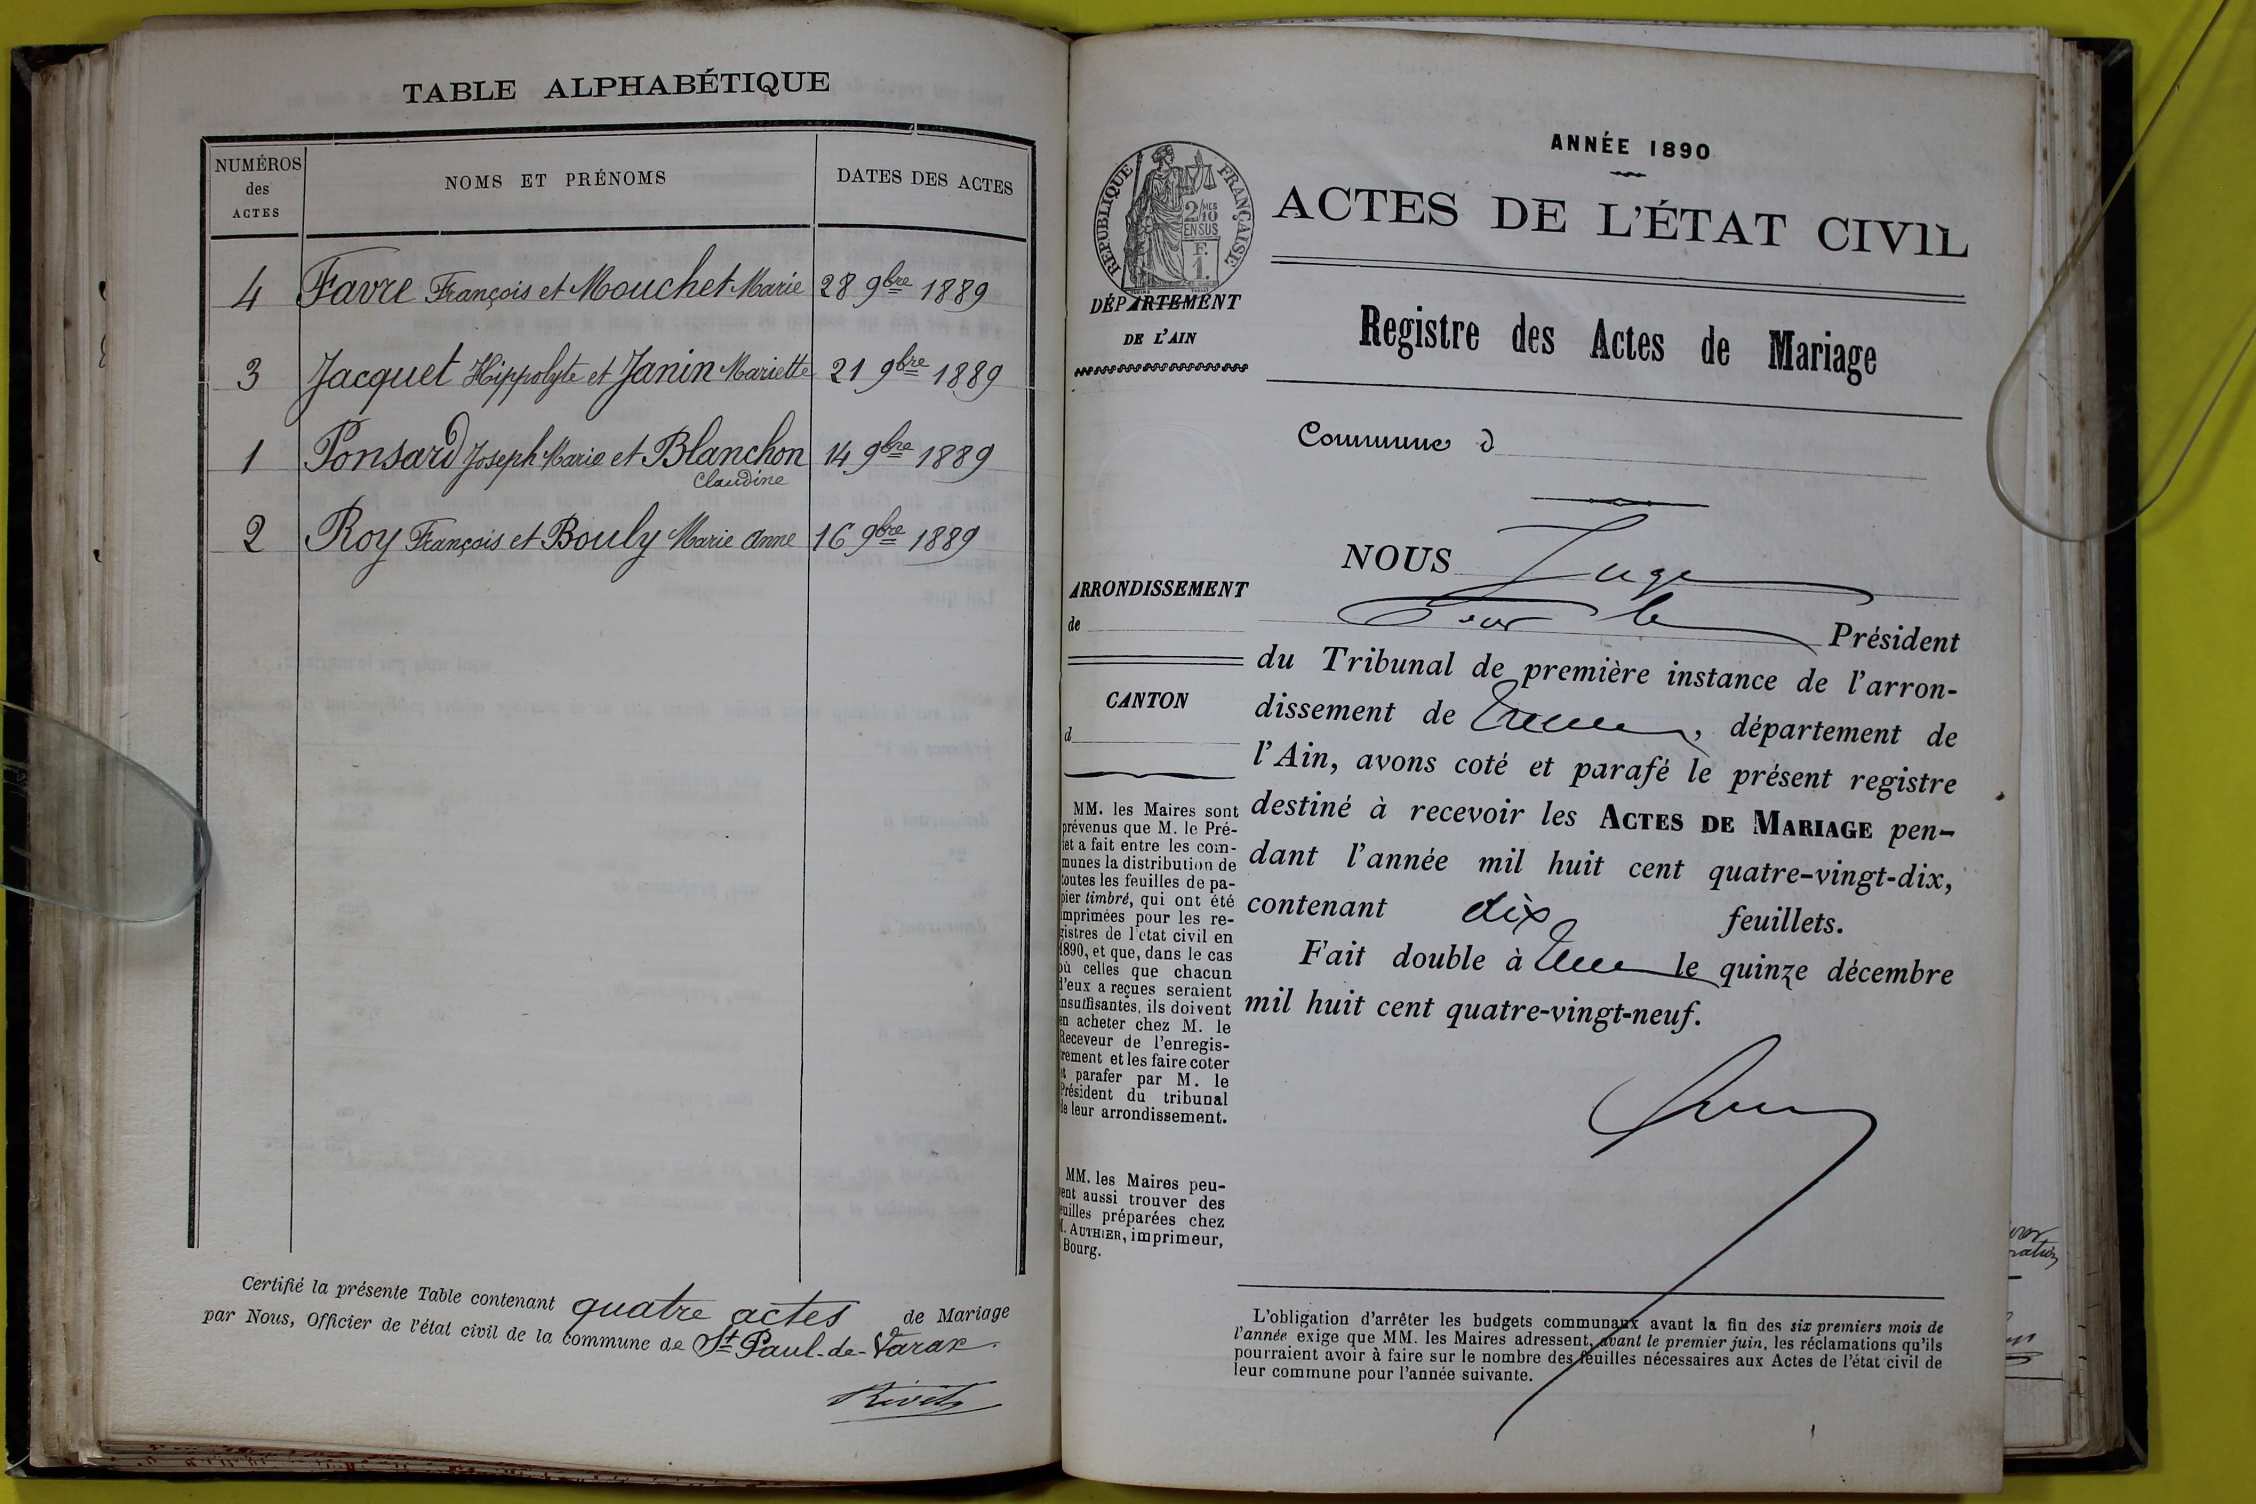 TABLE ALPHABÉTIQUE
NUMÉROS
des
ACTES
NOMS ET PRÉNOMS
DATES DES ACTES
4 Favre François et Mouchet Marie 28 9bre 1889
3 Jacquet Hippolyte et Janin Mariette 21 9bre 1889
1 Ponsard Joseph Marie et Blanchon 14 9bre 1889
Claudine
2 Roy François et Bouly Marie Anne 16 9bre 1889
Certifié la présente Table contenant quatre actes de Mariage
par Nous, Officier de l'état civil de la commune de St Paul-de-Varax
ANNÉE 1890
ACTES DE L'ÉTAT CIVIL
RÉPUBLIQUE FRANÇAISE
2/10 MES
EN SUS
F.
1.
DÉPARTEMENT
DE L'AIN
Registre des Actes de Mariage
Commune d
NOUS Juge
Pour le Président
ARRONDISSEMENT
de
CANTON
d
du Tribunal de première instance de l'arron-
dissement de , département de
l'Ain, avons coté et parafé le présent registre
destiné à recevoir les ACTES DE MARIAGE pen-
dant l'année mil huit cent quatre-vingt-dix,
contenant dix feuillets.
Fait double à le quinze décembre
mil huit cent quatre-vingt-neuf.
MM. les Maires sont
prévenus que M. le Pré-
fet a fait entre les com-
munes la distribution de
toutes les feuilles de pa-
pier timbré, qui ont été
imprimées pour les re-
gistres de l'état civil en
1890, et que, dans le cas
où celles que chacun
d'eux a reçues seraient
insuffisantes, ils doivent
en acheter chez M. le
Receveur de l'enregis-
trement et les faire coter
et parafer par M. le
Président du tribunal
de leur arrondissement.
MM. les Maires peu-
vent aussi trouver des
feuilles préparées chez
M. AUTHIER, imprimeur,
Bourg.
L'obligation d'arrêter les budgets communaux avant la fin des six premiers mois de
l'année exige que MM. les Maires adressent, avant le premier juin, les réclamations qu'ils
pourraient avoir à faire sur le nombre des feuilles nécessaires aux Actes de l'état civil de
leur commune pour l'année suivante.